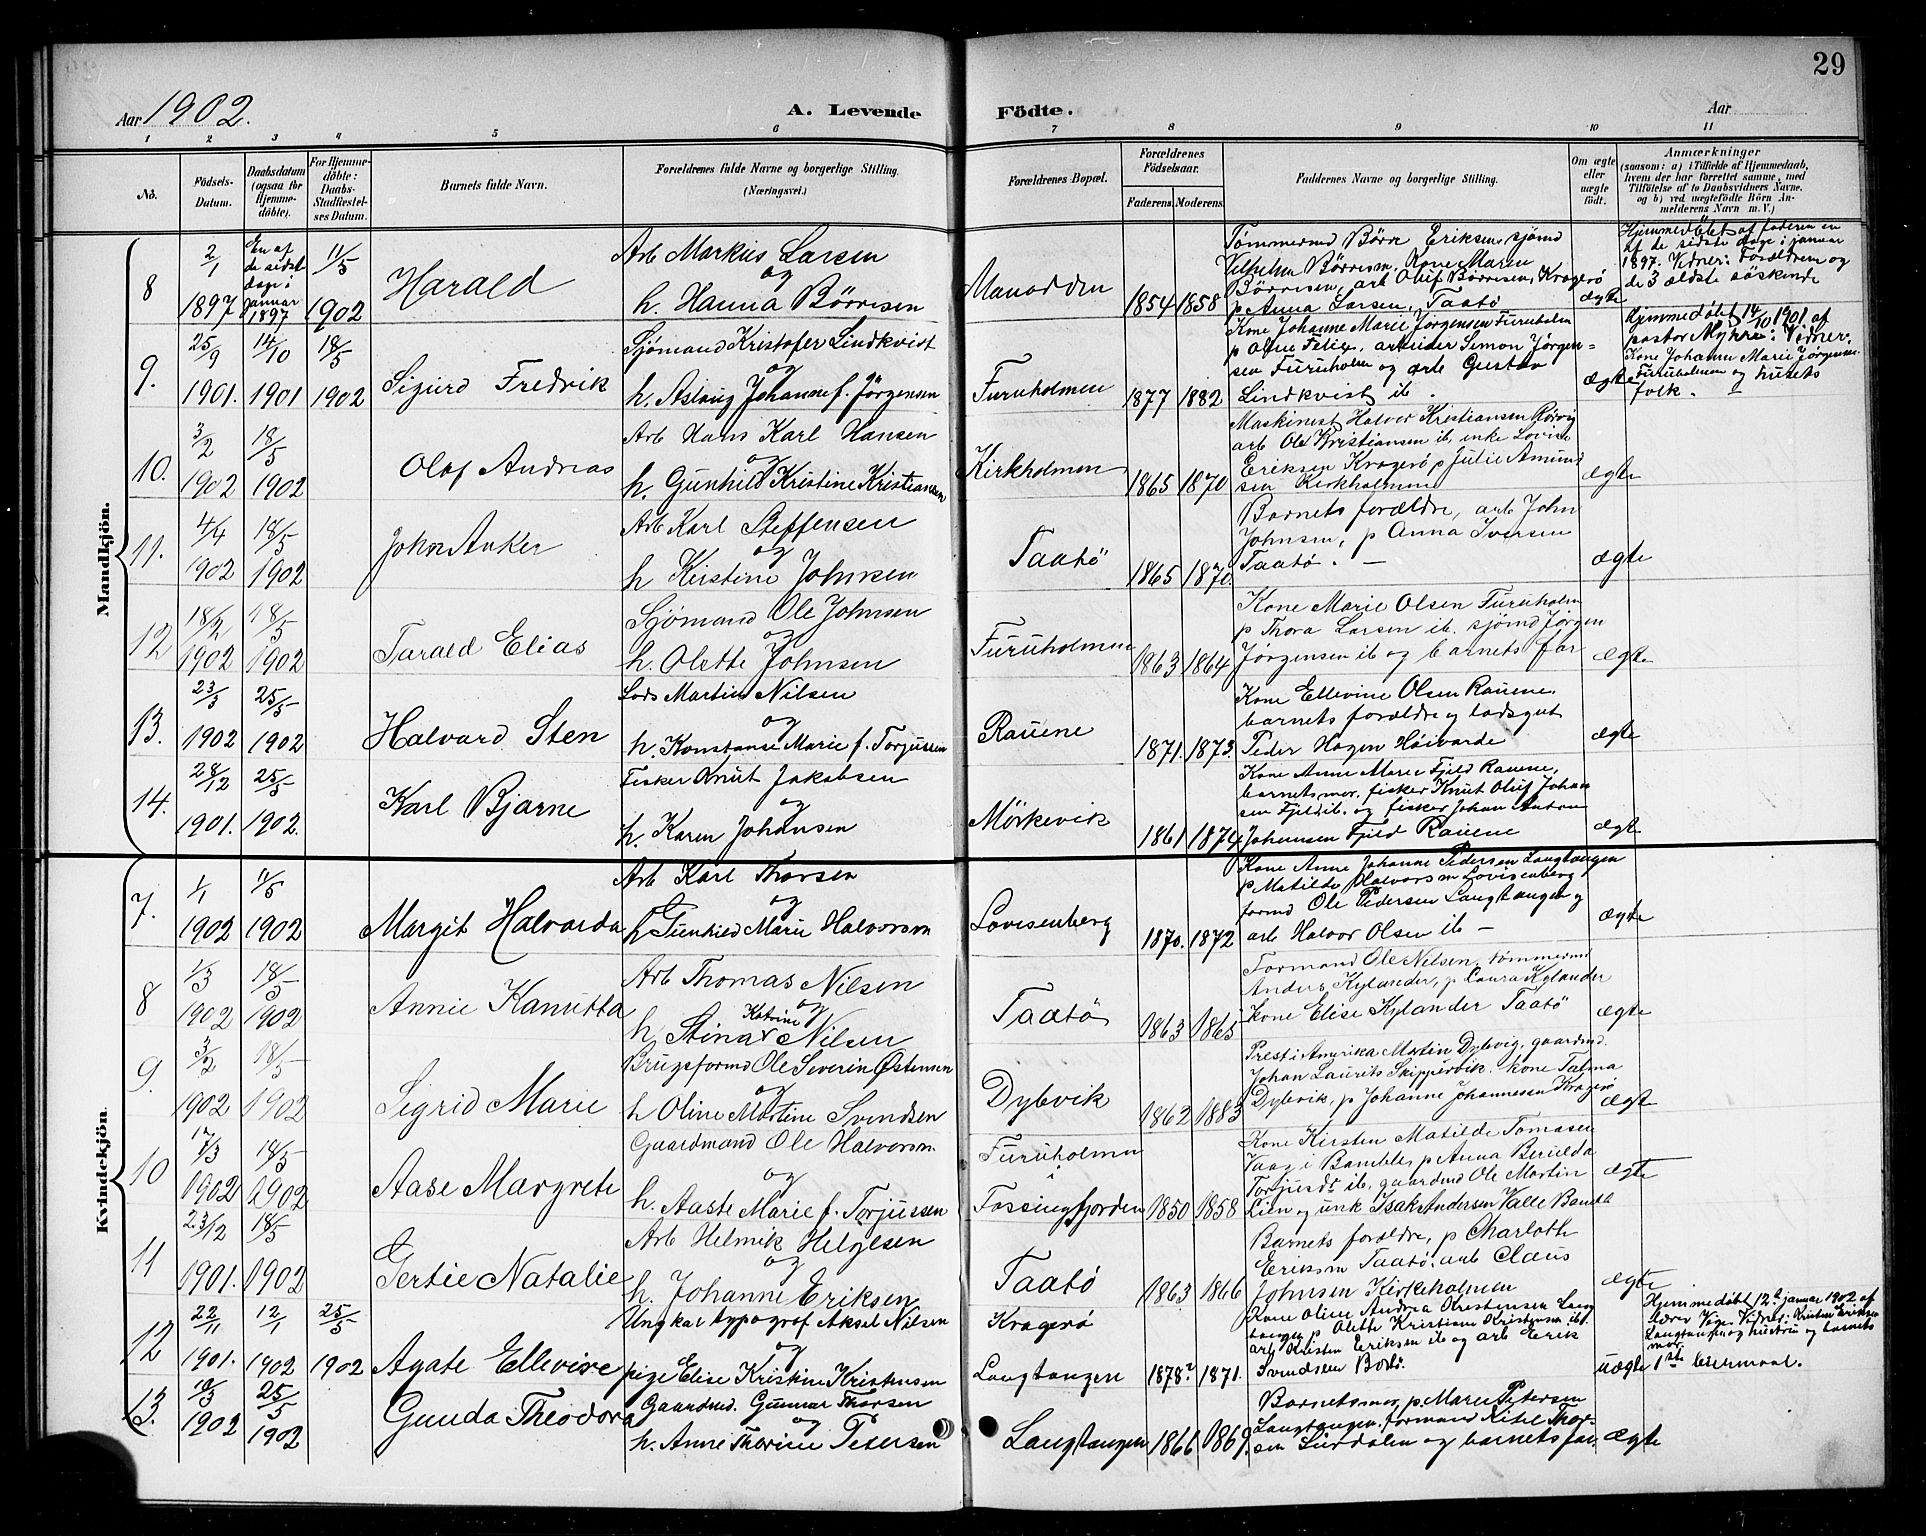 29
Aar 1902.
A. Levende Födte.
Aar
1 2 3 4 5 6 7 8 9 10 11
No.
Födsels-Datum.
Daabsdatum (ogsaa for Hjemme-döbte).
For Hjemme-döbte: Daabs-Stadfæstel-ses Datum.
Barnets fulde Navn.
Forældrenes fulde Navne og borgerlige Stilling. (Næringsvei.)
Forældrenes Bopæl.
Forældrenes Födselsaar.
Faderens. Moderens.
Faddernes Navne og borgerlige Stilling.
Om ægte eller uægte födt.
Anmærkninger
(saasom: a) i Tilfælde af Hjemmedaab, hvem der har forrettet samme, med Tilföielse af to Daabsvidners Navne, og b) ved uægtefödte Börn An-melderens Navn m. V.)
Mandkjön.
8
2/1 1897
En af de sidste dage i januar 1897
11/5 1902
Harald
Arb Markus Larsen
og
h. Hanna Börresen
Manodden
1854 1858
Tømmermd Börre Eriksen, sjömd
Vilhelm Börresen, Kone Maren
Börresen, arb Oluf Börresen, Kragerö
p Anna Larsen, Taatö
ægte
Hjemmedöbt af faderen en
af de sidste dage i januar
1897. Vidner: Forældrene og
de 3 ældste söskende
9.
25/9 1901.
14/10 1901
18/5 1902
Sigurd Fredrik
Sjömand Kristofer Lindkvist
og
h. Aslaug Johanne f. Jörgensen
Furuholmen
1877 1882
Kone Johanne Marie Jörgensen Furuholmen
p Oline Felix, arbeider Simon Jörgen-
sen Furuholm og arb Gustav
Lindkvist ib.
ægte
Hjemmedöbt 14/10 1901 af
pastor Myhre. Vidner:
Kone Johanne Marie Jörgensen
Furuholmen og husets
folk. –
10.
3/2 1902
18/5 1902
Olaf Andreas
Arb Hans Karl Hansen
og
h. Gunhild Kristine Kristiansen
Kirkholmen
1865 1870
Maskinest Halvor Kristiansen Rörvig
arb Ole Kristiansen ib, enke Lovise
Eriksen Kragerö, p Julie Amund
sen Kirkholmen
ægte
11.
4/4 1902
18/5 1902
John Anker
Arb Karl Steffensen
og
h Kirstine Johnsen
Taatö
1865 1870.
Barnets forældre, arb John
Johnsen, p Anna Iversen
Taatö. –
ægte
12
18/2 1902
18/5 1902
Tarald Elias
Sjömand Ole Johnsen
og
h. Olette Johnsen
Furuholmen
1863 1864
Kone Marie Olsen Furuholm
p Thora Larsen ib. sjömd Jörgen
Jörgensen ib og barnets far
ægte
13.
23/3 1902
25/5 1902
Halvard Sten
Lods Martin Nilsen
og
h. Konstanse Marie f. Torjussen
Rauene
1871. 1873.
Kone Ellevine Olsen Rauene,
barnets forældre og lodsgut
Peder Hagen Höivarde
ægte
14.
28/12 1901.
25/5 1902.
Karl Bjarne
Fisker Knut Jakobsen
og
h. Karen Johansen
Mörkevik
1861 1874
Kone Anne Marie Fjeld Rauene,
barnets mor, fisker Knut Oluf Johan
sen Fjeld ib. og fisker Johan Anton
Johansen Fjeld Rauene
ægte
Kvindekjön.
7.
1/1 1902
11/5 1902
Margit Halvarda
Arb Karl Thorsen
og
h Gunhild Marie Halvorsen
Lovisenberg
1870. 1872
Kone Anne Johanne Pedersen Langtangen
p Matilde Halvorsen Lovisenberg,
formd Ole Pedersen Langtangen og
arb Halvor Olsen ib –
ægte
8
1/3 1902
18/5 1902
Annie Kanutta
Arb Thomas Nilsen
og
h. Stina Katrine Nilsen
Taatö
1863 1865
Formand Ole Nilsen, tömmermd
Anders Kylander, p Laura Kylander
kone Elise Kylander Taatö
ægte
9.
3/2 1902
18/5 1902
Sigrid Marie
Brugsformd Ole Severin Østensen
og
h Oline Martine Svendsen
Dybvik
1862 1883
Prest i Amerika Martin Dybvig, gaardmd.
Johan Laurits Skippervik. kone Talma
Dybvik, p Johanne Johannesen Kragerö
ægte
10
17/3 1902
18/5 1902
Aase Margrete
Gaardmand Ole Halvorsen
og
h. Aaste Marie f. Torjussen
Furuholmen i Fossingfjorden
1850 1858
Kone Kirsten Matilde Tomasen
Vaag i Bamble, p Anna Berulda
Torjusdr ib. gaardmd Ole Martin
Lien og unk Isak Andersen Valle Bamble
ægte
11
23/12 1901.
18/5 1902
Gertie Natalie
Arb Helmik Helgesen
og
h. Johanne Eriksen
Taatö
1863 1866
Barnets forældre, p Charlotte
Eriksen Taatö, arb Claus
Johnsen Kirkeholmen
ægte
12
22/11 1901.
12/1 1902
25/5 1902
Agate Ellevine
Ungkar typograf Aksel Nilsen
og
pige Elise Kristine Kristensen
Kragerö
Langtangen
1878? 1871.
Kone Oline Andrea Kristensen Lang
tangen, p Olette Kristiane Kristensen ib.
arb Kristen Eriksen ib og arb Erik
Svendsen Bortö.
uægte
Hjemmedöbt 12te januar 1902 af
Vidner: Kristen Eriksen
Langtangen og hustru og barnets
mor.
1ste leiermaal.
13.
10/3 1902
25/5 1902
Gunda Theodora
Gaardmd. Gunnar Thorsen
og
h. Anne Thorine Petersen
Langtangen
1866 1869.
Barnets mor, p Marie Petersen
Langtangen, formand Kitil Thor-
sen Surdalen og barnets far.
ægte